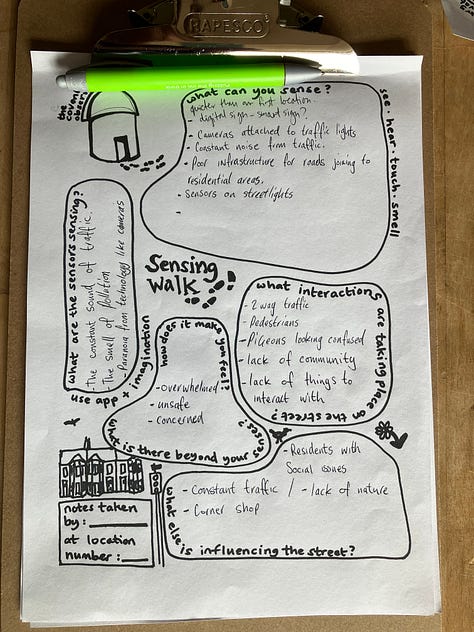 RAPESCO
what can you sense?
see · hear · touch · smell
quieter than on first location.
- digital sign - smart sign?
- Cameras attached to traffic lights
- Constant noise from traffic.
- Poor infrastructure for roads joining to
residential areas.
- Sensors on streetlights
-
the
observ
what are the sensors sensing?
- The constant sound of traffic.
- The smell of Pollution
- Paranoia from technology like cameras
use app + imagination
Sensing
walk
what interactions
are taking place on the street?
- 2 way traffic
- Pedestrians
- Pigeons looking confused
- lack of community
- lack of things to
interact with
how does it make you feel?
- overwhelmed
- unsafe
- concerned
what is there beyond your senses?
- Residents with
Social issues
- Constant traffic / - lack of nature
- Corner shop
what else is influencing the street?
notes taken
by:
at location
number: